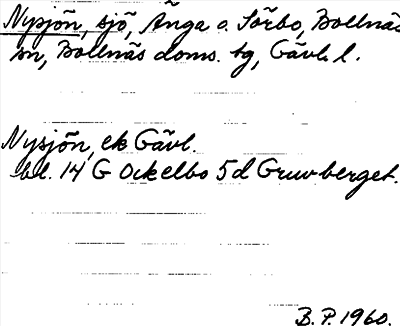 Nysjön, sjö, Änga o. Sörbo, Bollnäs
sn, Bollnäs doms. tg, Gävleb. l.
Nysjön, ek Gävl.
bl. 14 G Ockelbo 5d Gruvberget.
B. P. 1960.